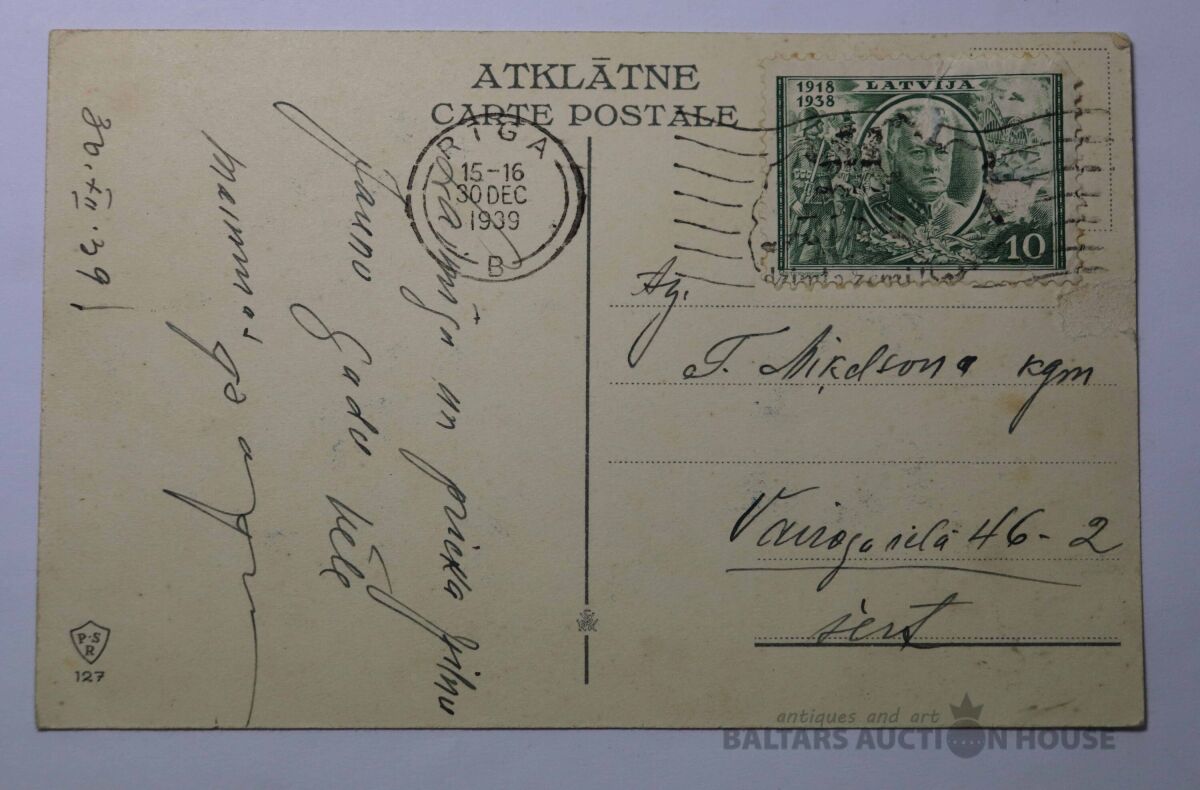 ATKLĀTNE
CARTE POSTALE
1918
1938
LATVIJA
10
RIGA
15-16
30 DEC
1939
B
dzimta zemi
Laimīgu un prieka pilnu
Jauno Gadu vēlē
30.XII.39
Aģ.
T. Miķelsona kgm
Vairoga ielā 46-2
šeit
P·S
R
127
antiques and art
BALTARS AUCTION HOUSE